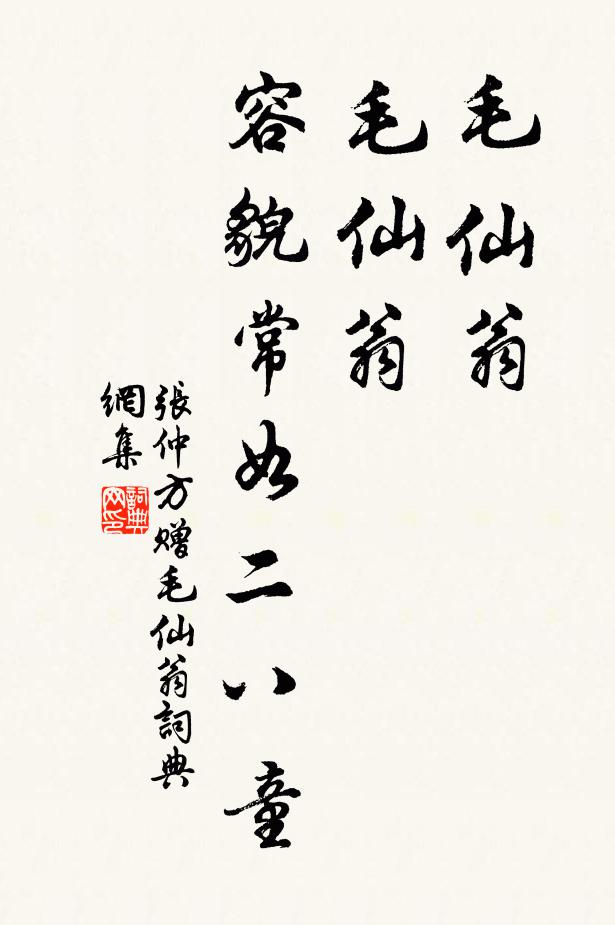 毛仙翁
毛仙翁
容貌常如二八童
張仲方贈毛仙翁詞典
網集
詞典
网印